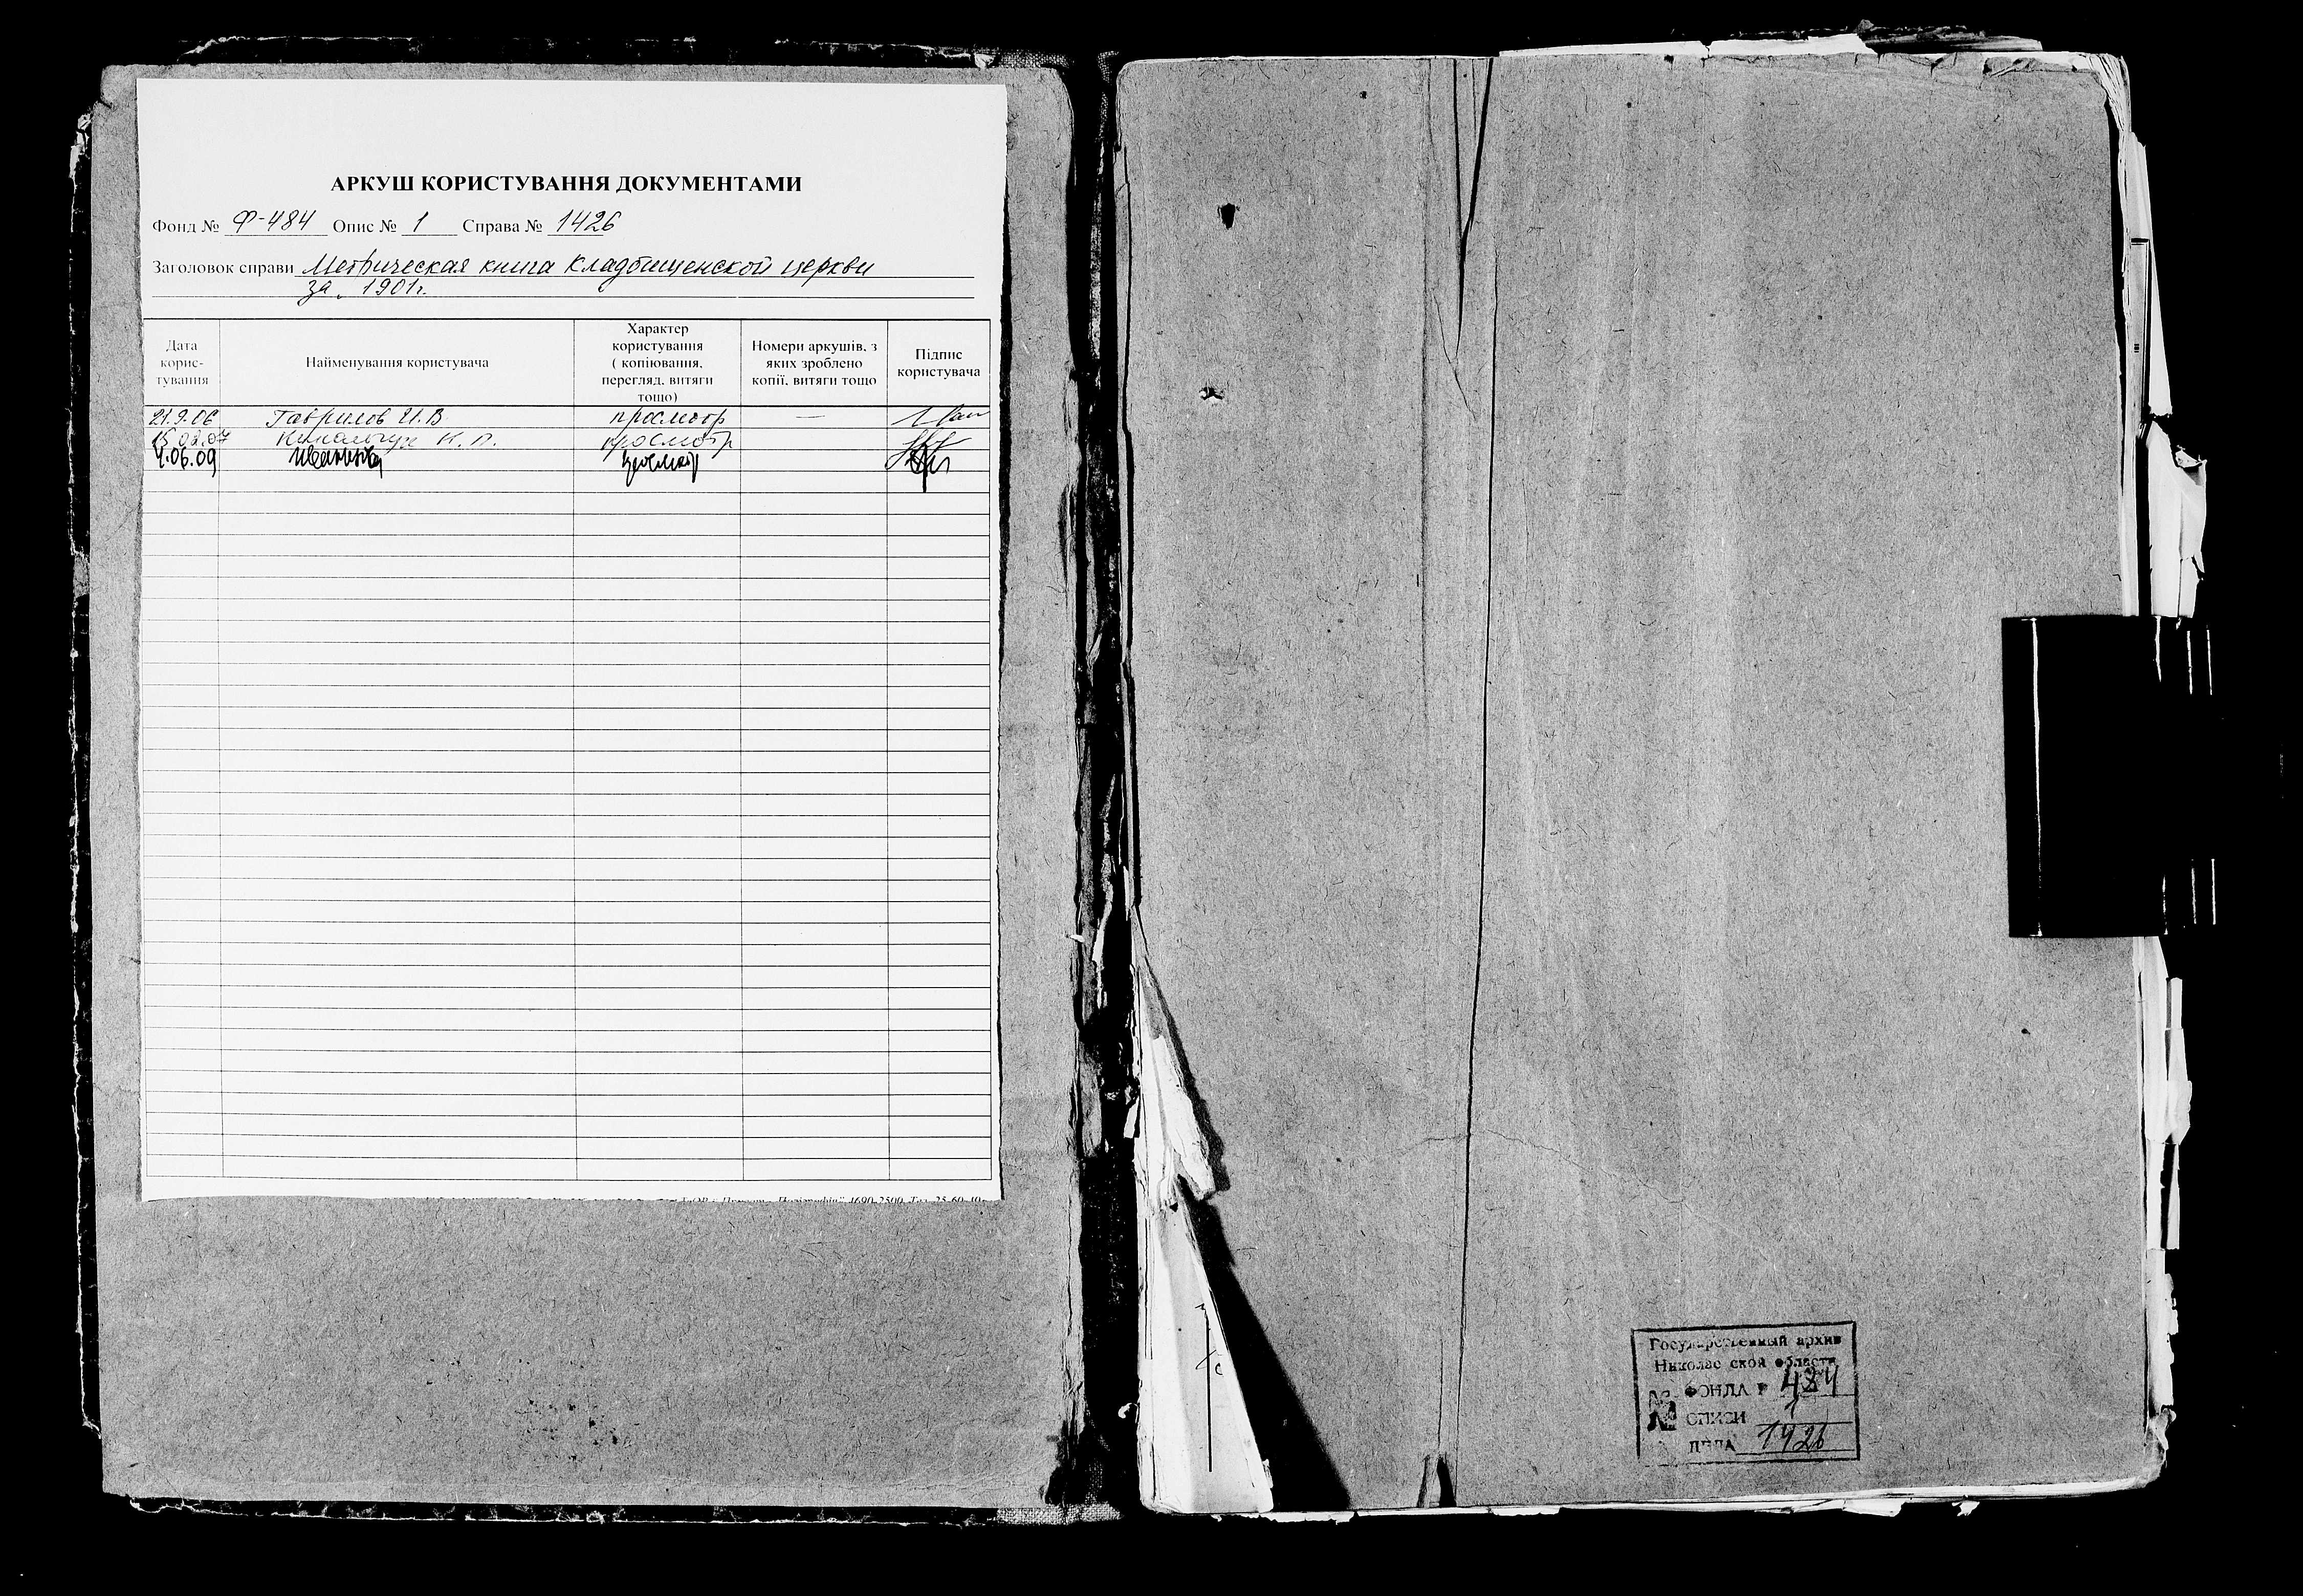 АРКУШ КОРИСТУВАННЯ ДОКУМЕНТАМИ
Фонд № Ф-484 Опис № 1 Справа № 1426
Заголовок справи Метрическая книга Кладбищенской церкви
за 1901г.
Дата корис-тування
Найменування користувача
Характер користування ( копіювання, перегляд, витяги тощо)
Номери аркушів, з яких зроблено копії, витяги тощо
Підпис користувача
21.9.06 Гаврилов И.В. просмотр —
15.08.07 просмотр
4.06.09 просмотр
Государственный архив
Николаевской области
№ ФОНДА Р 484
ОПИСИ 1
ДЕЛА 1426